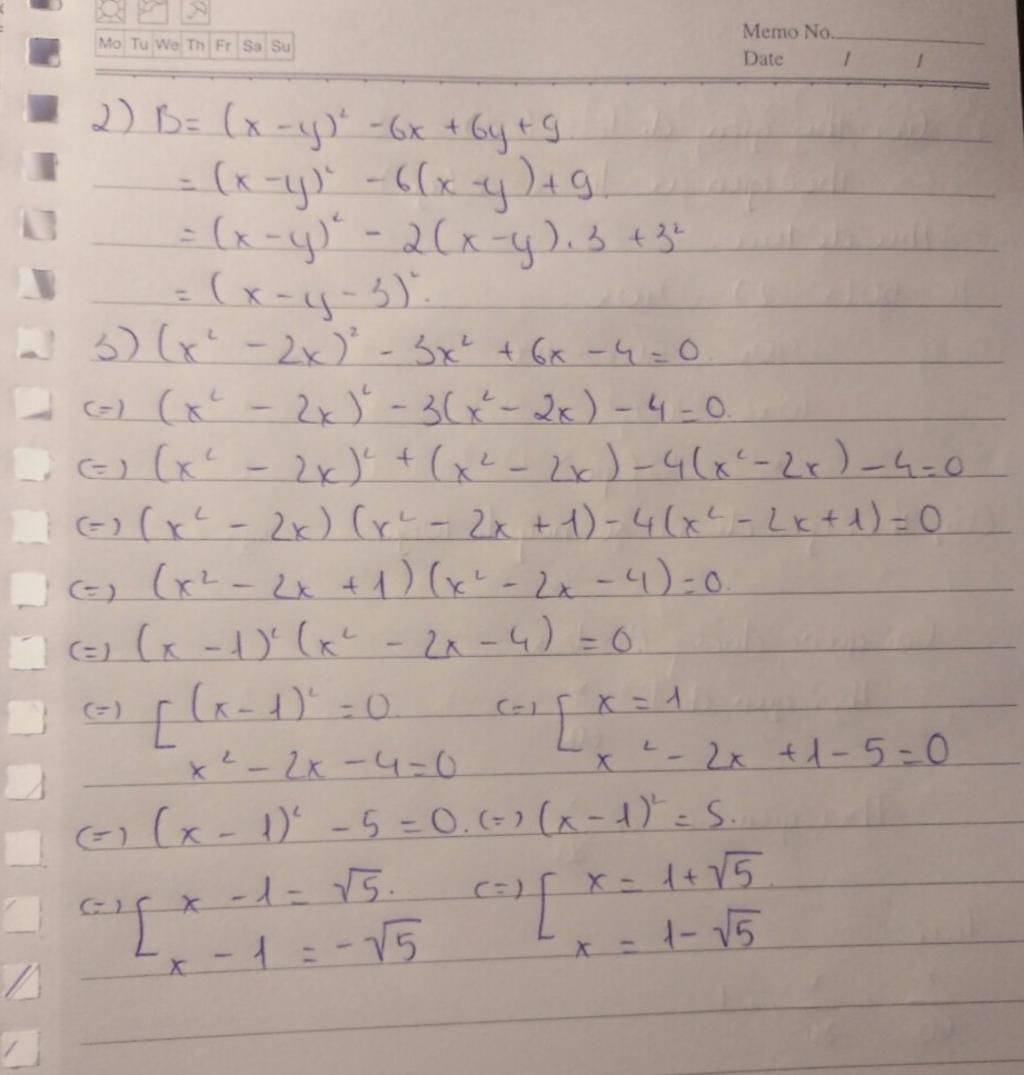 Mo Tu We Th Fr Sa Su
Memo No.
Date / /
2) B = (x - y)² - 6x + 6y + 9
= (x - y)² - 6(x - y) + 9
= (x - y)² - 2(x - y).3 + 3²
= (x - y - 3)².
3) (x² - 2x)² - 3x² + 6x - 4 = 0
(=) (x² - 2x)² - 3(x² - 2x) - 4 = 0.
(=) (x² - 2x)² + (x² - 2x) - 4(x² - 2x) - 4 = 0
(=) (x² - 2x) (x² - 2x + 1) - 4(x² - 2x + 1) = 0
(=) (x² - 2x + 1) (x² - 2x - 4) = 0.
(=) (x - 1)² (x² - 2x - 4) = 0
(=) [ (x - 1)² = 0 (=) [ x = 1
x² - 2x - 4 = 0 x² - 2x + 1 - 5 = 0
(=) (x - 1)² - 5 = 0. (=) (x - 1)² = 5.
(=) [ x - 1 = √5. (=) [ x = 1 + √5
x - 1 = -√5 x = 1 - √5